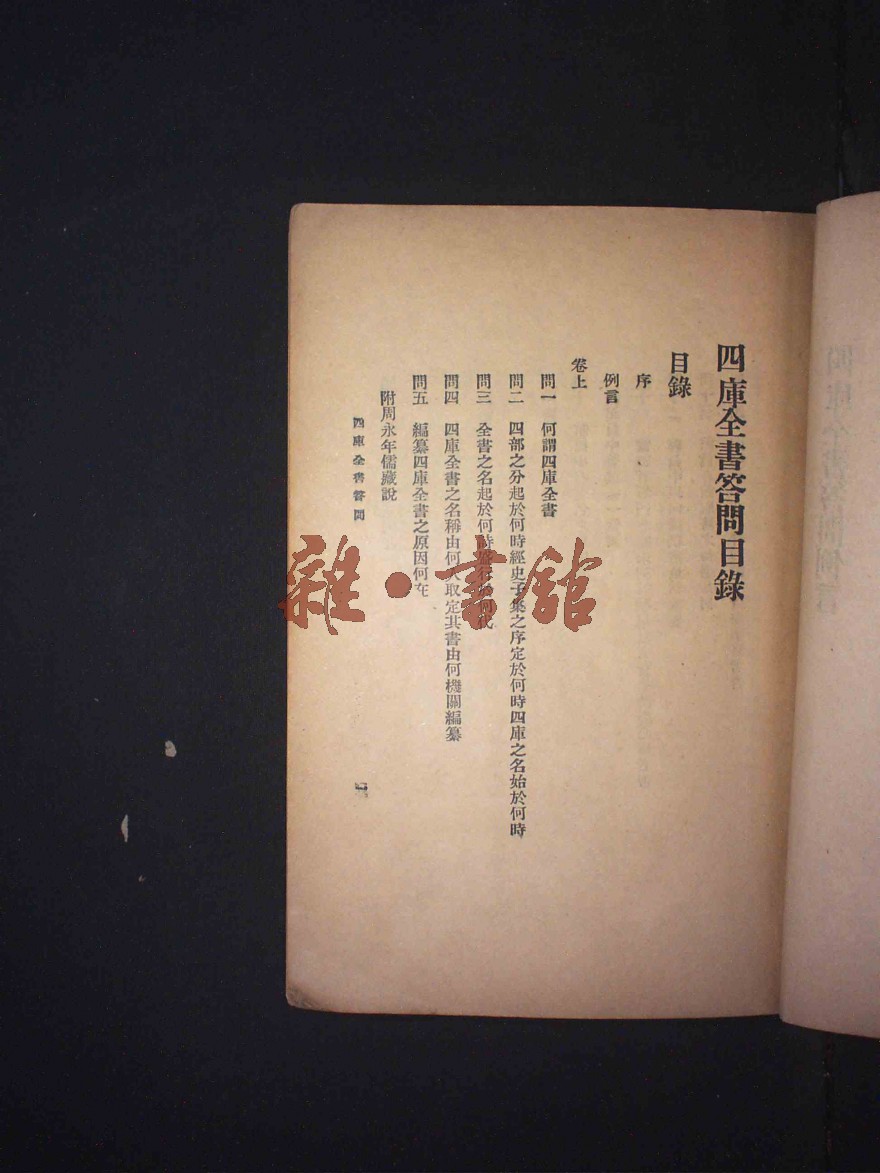 四庫全書答問目錄
目錄
序
例言
卷上
問一　何謂四庫全書
問二　四部之分起於何時經史子集之序定於何時四庫之名始於何時
問三　全書之名起於何時盛行於何代
問四　四庫全書之名稱由何人取定其書由何機關編纂
問五　編纂四庫全書之原因何在
附周永年儒藏說
四庫全書答問
雜·書館